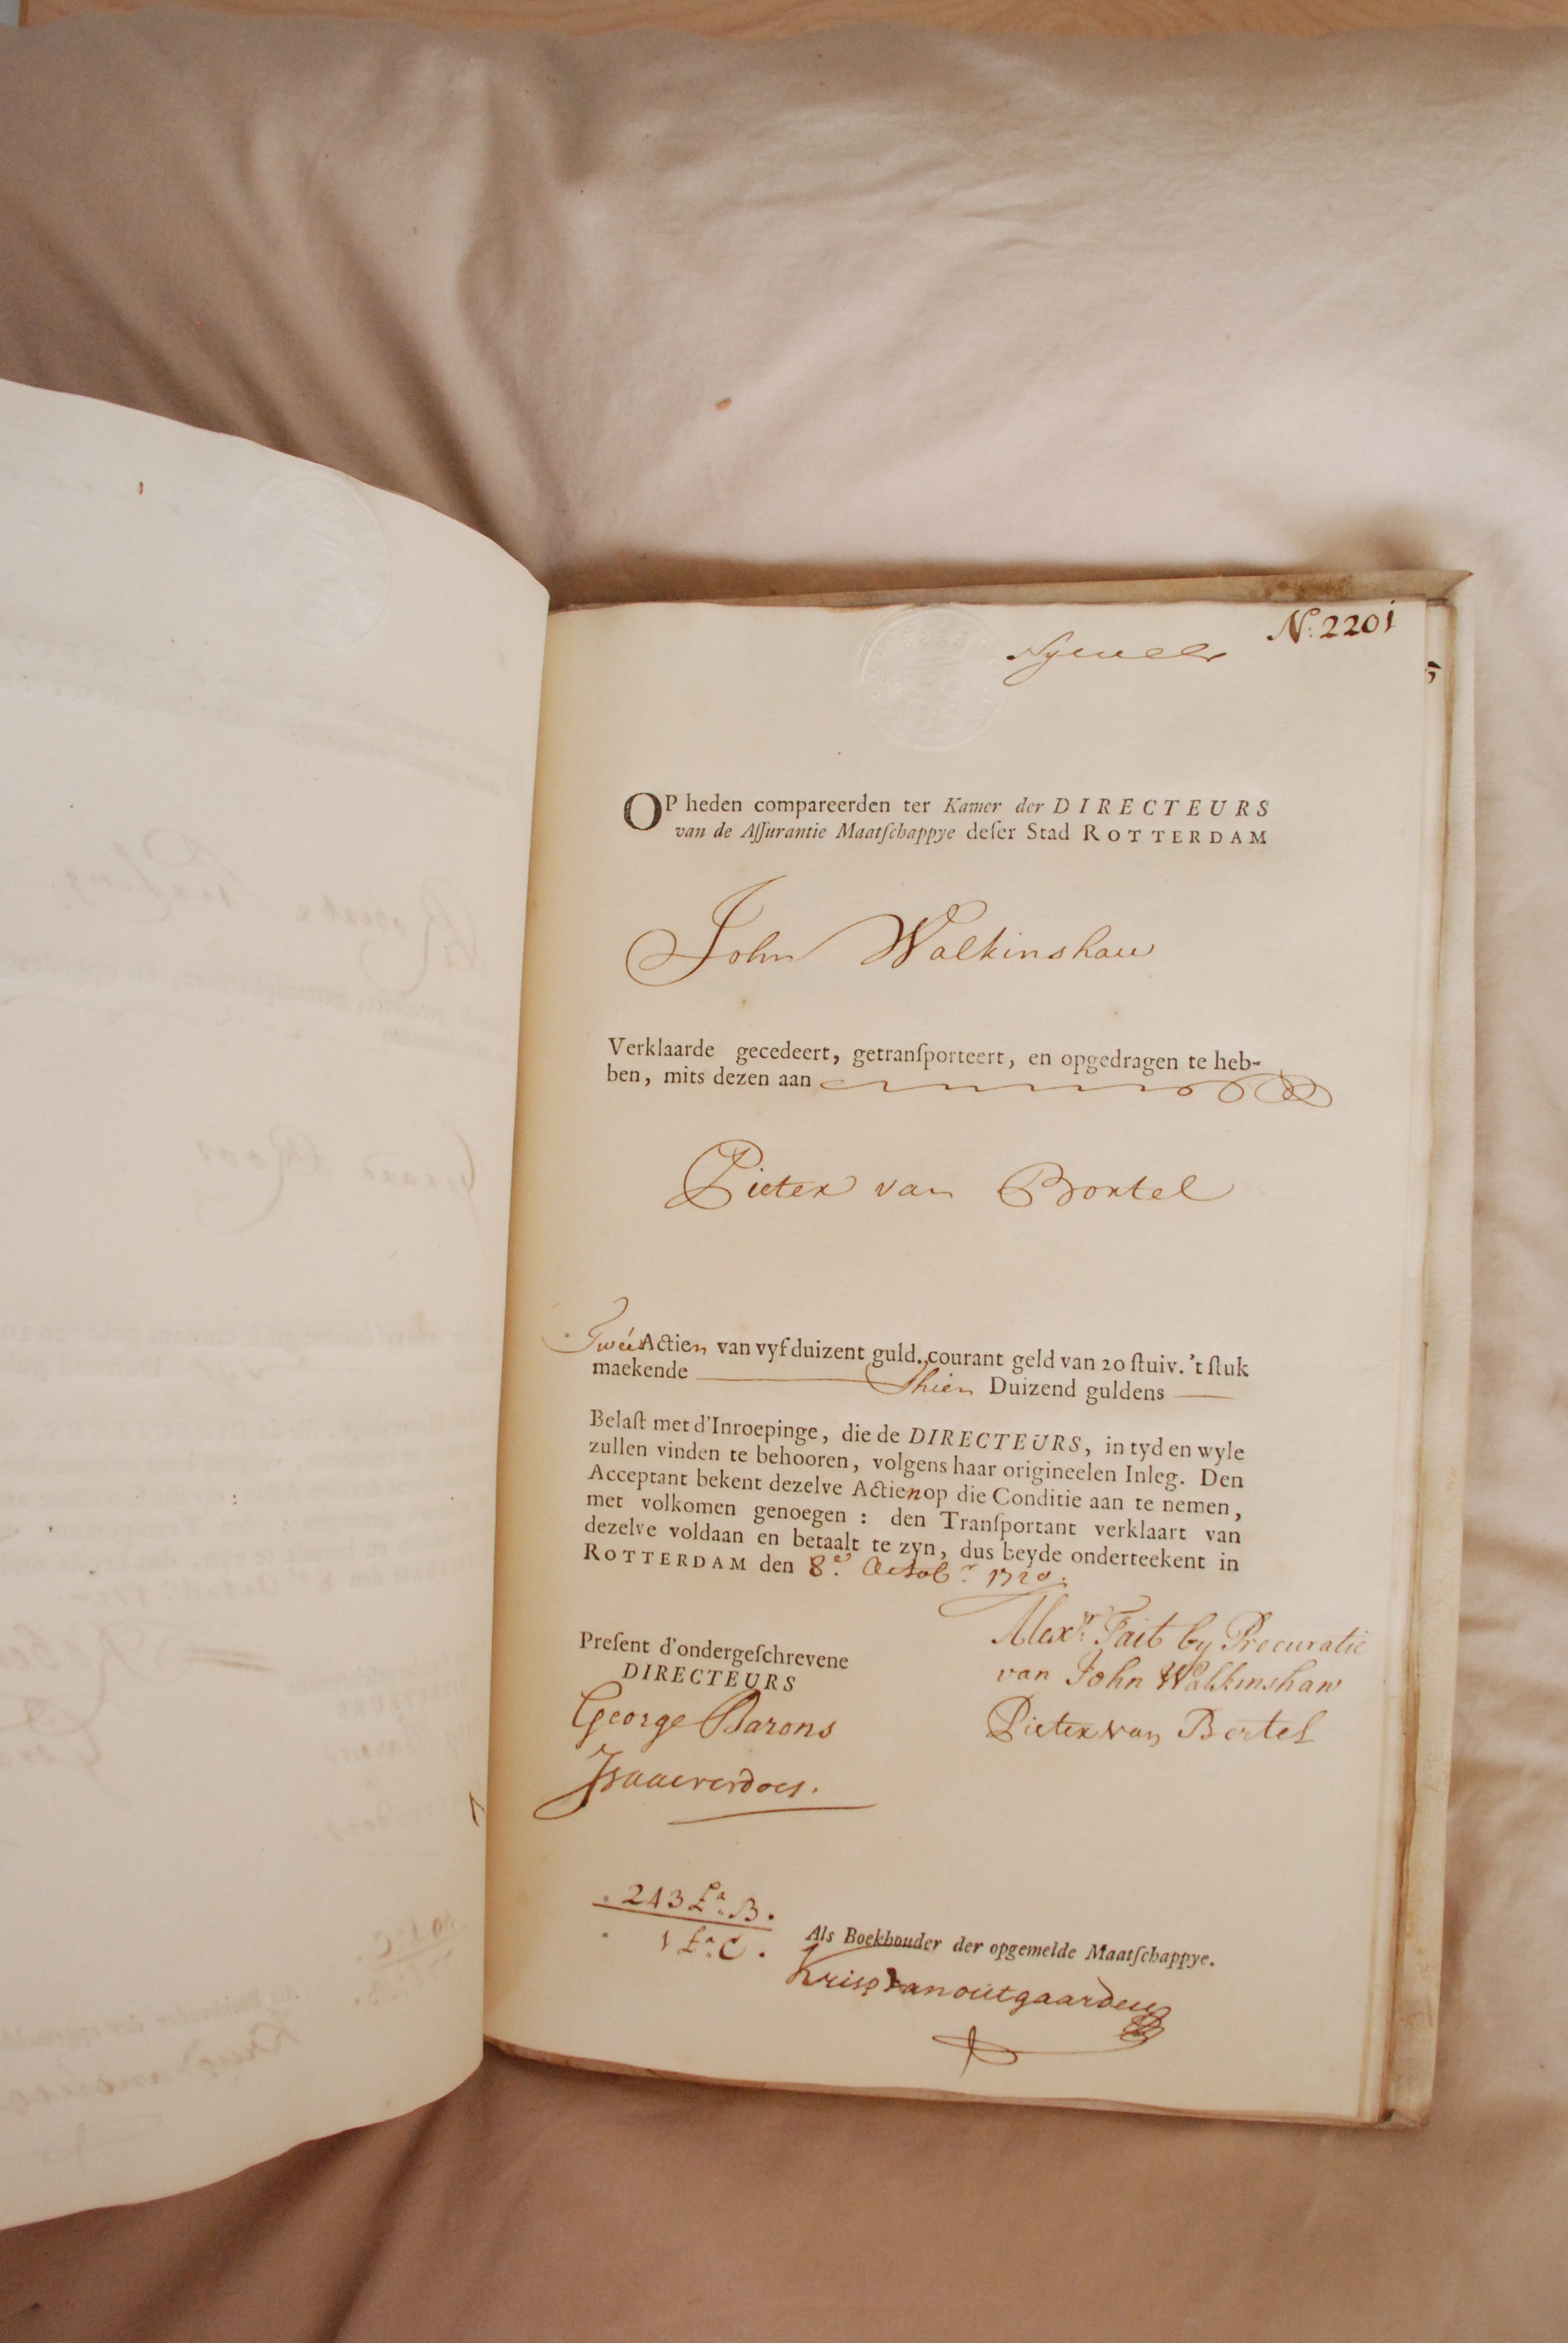 N: 2201
OP heden compareerden ter Kamer der DIRECTEURS
van de Aſſurantie Maatſchappye deſer Stad ROTTERDAM
John Walkinshaw
Verklaarde gecedeert, getranſporteert, en opgedragen te heb-
ben, mits dezen aan
Pieter van Bortel
Twée Actien van vyf duizent guld. courant geld van 20 ſtuiv. 't ſtuk
maekende Thien Duizend guldens
Belaſt met d'Inroepinge, die de DIRECTEURS, in tyd en wyle
zullen vinden te behooren, volgens haar origineelen Inleg. Den
Acceptant bekent dezelve Actien op die Conditie aan te nemen,
met volkomen genoegen : den Tranſportant verklaart van
dezelve voldaan en betaalt te zyn, dus beyde onderteekent in
ROTTERDAM den 8e. Octobr. 1720.
Alexr. Tait by Procuratie
van John Walkinshaw
Pieter van Bortel
Preſent d'ondergeſchrevene
DIRECTEURS
George Barons
Isaac verdoes.
243 La. B.
1 La. C.
Als Boekhouder der opgemelde Maatſchappye.
Krisp van outgaarden